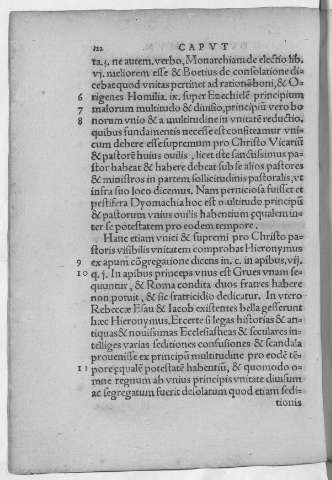 122 CAPVT
ta. 5. ne autem. verbo, Monarchiam de electio lib.
vj. meliorem esse & Boetius de consolatione di
cebat quod vnitas pertinet ad rationẽ boni, & O-
6 rigenes Homilia. ix. super Ezechielẽ principium
7 malorum multitudo & diuisio, principiũ vero bo
8 norum vnio & a multitudine in vnitatẽ reductio,
quibus fundamentis necesse est confiteamur vni-
cum debere esse supremum pro Christo Vicariũ
& pastorẽ huius ouilis, licet iste sanctissimus pa-
stor habeat & habere debeat sub se alios pastores
& ministros in partem sollicitudinis pastoralis, vt
infra suo loco dicemus. Nam perniciosa fuisset et
pestifera Dyomachia hoc est multitudo principũ
& pastorum vnius ouilis habentium equalem in-
ter se potestatem pro eodem tempore.
Hanc etiam vnici & supremi pro Christo pa-
storis visibilis vnitatem comprobat Hieronymus
9 ex apum cõgregatione dicens in. c. in apibus, vij.
10 q. j. In apibus princeps vnus est Grues vnam se-
quuntur, & Roma condita duos fratres habere
non potuit, & sic fratricidio dedicatur. In vtero
Rebeccæ Esau & Iacob existentes bella gesserunt
hæc Hieronymus, Et certe si legas historias & an-
tiquas & nouissimas Ecclesiasticas & seculares in-
telliges varias seditiones confusiones & scandala
prouenisse ex principũ multitudine pro eodẽ tẽ-
11 pore equalẽ potestatẽ habentiũ, & quomodo o-
mne regnum ab vnius principis vnitate diuisum
ac segregatum fuerit desolatum quod etiam sedi-
tionis